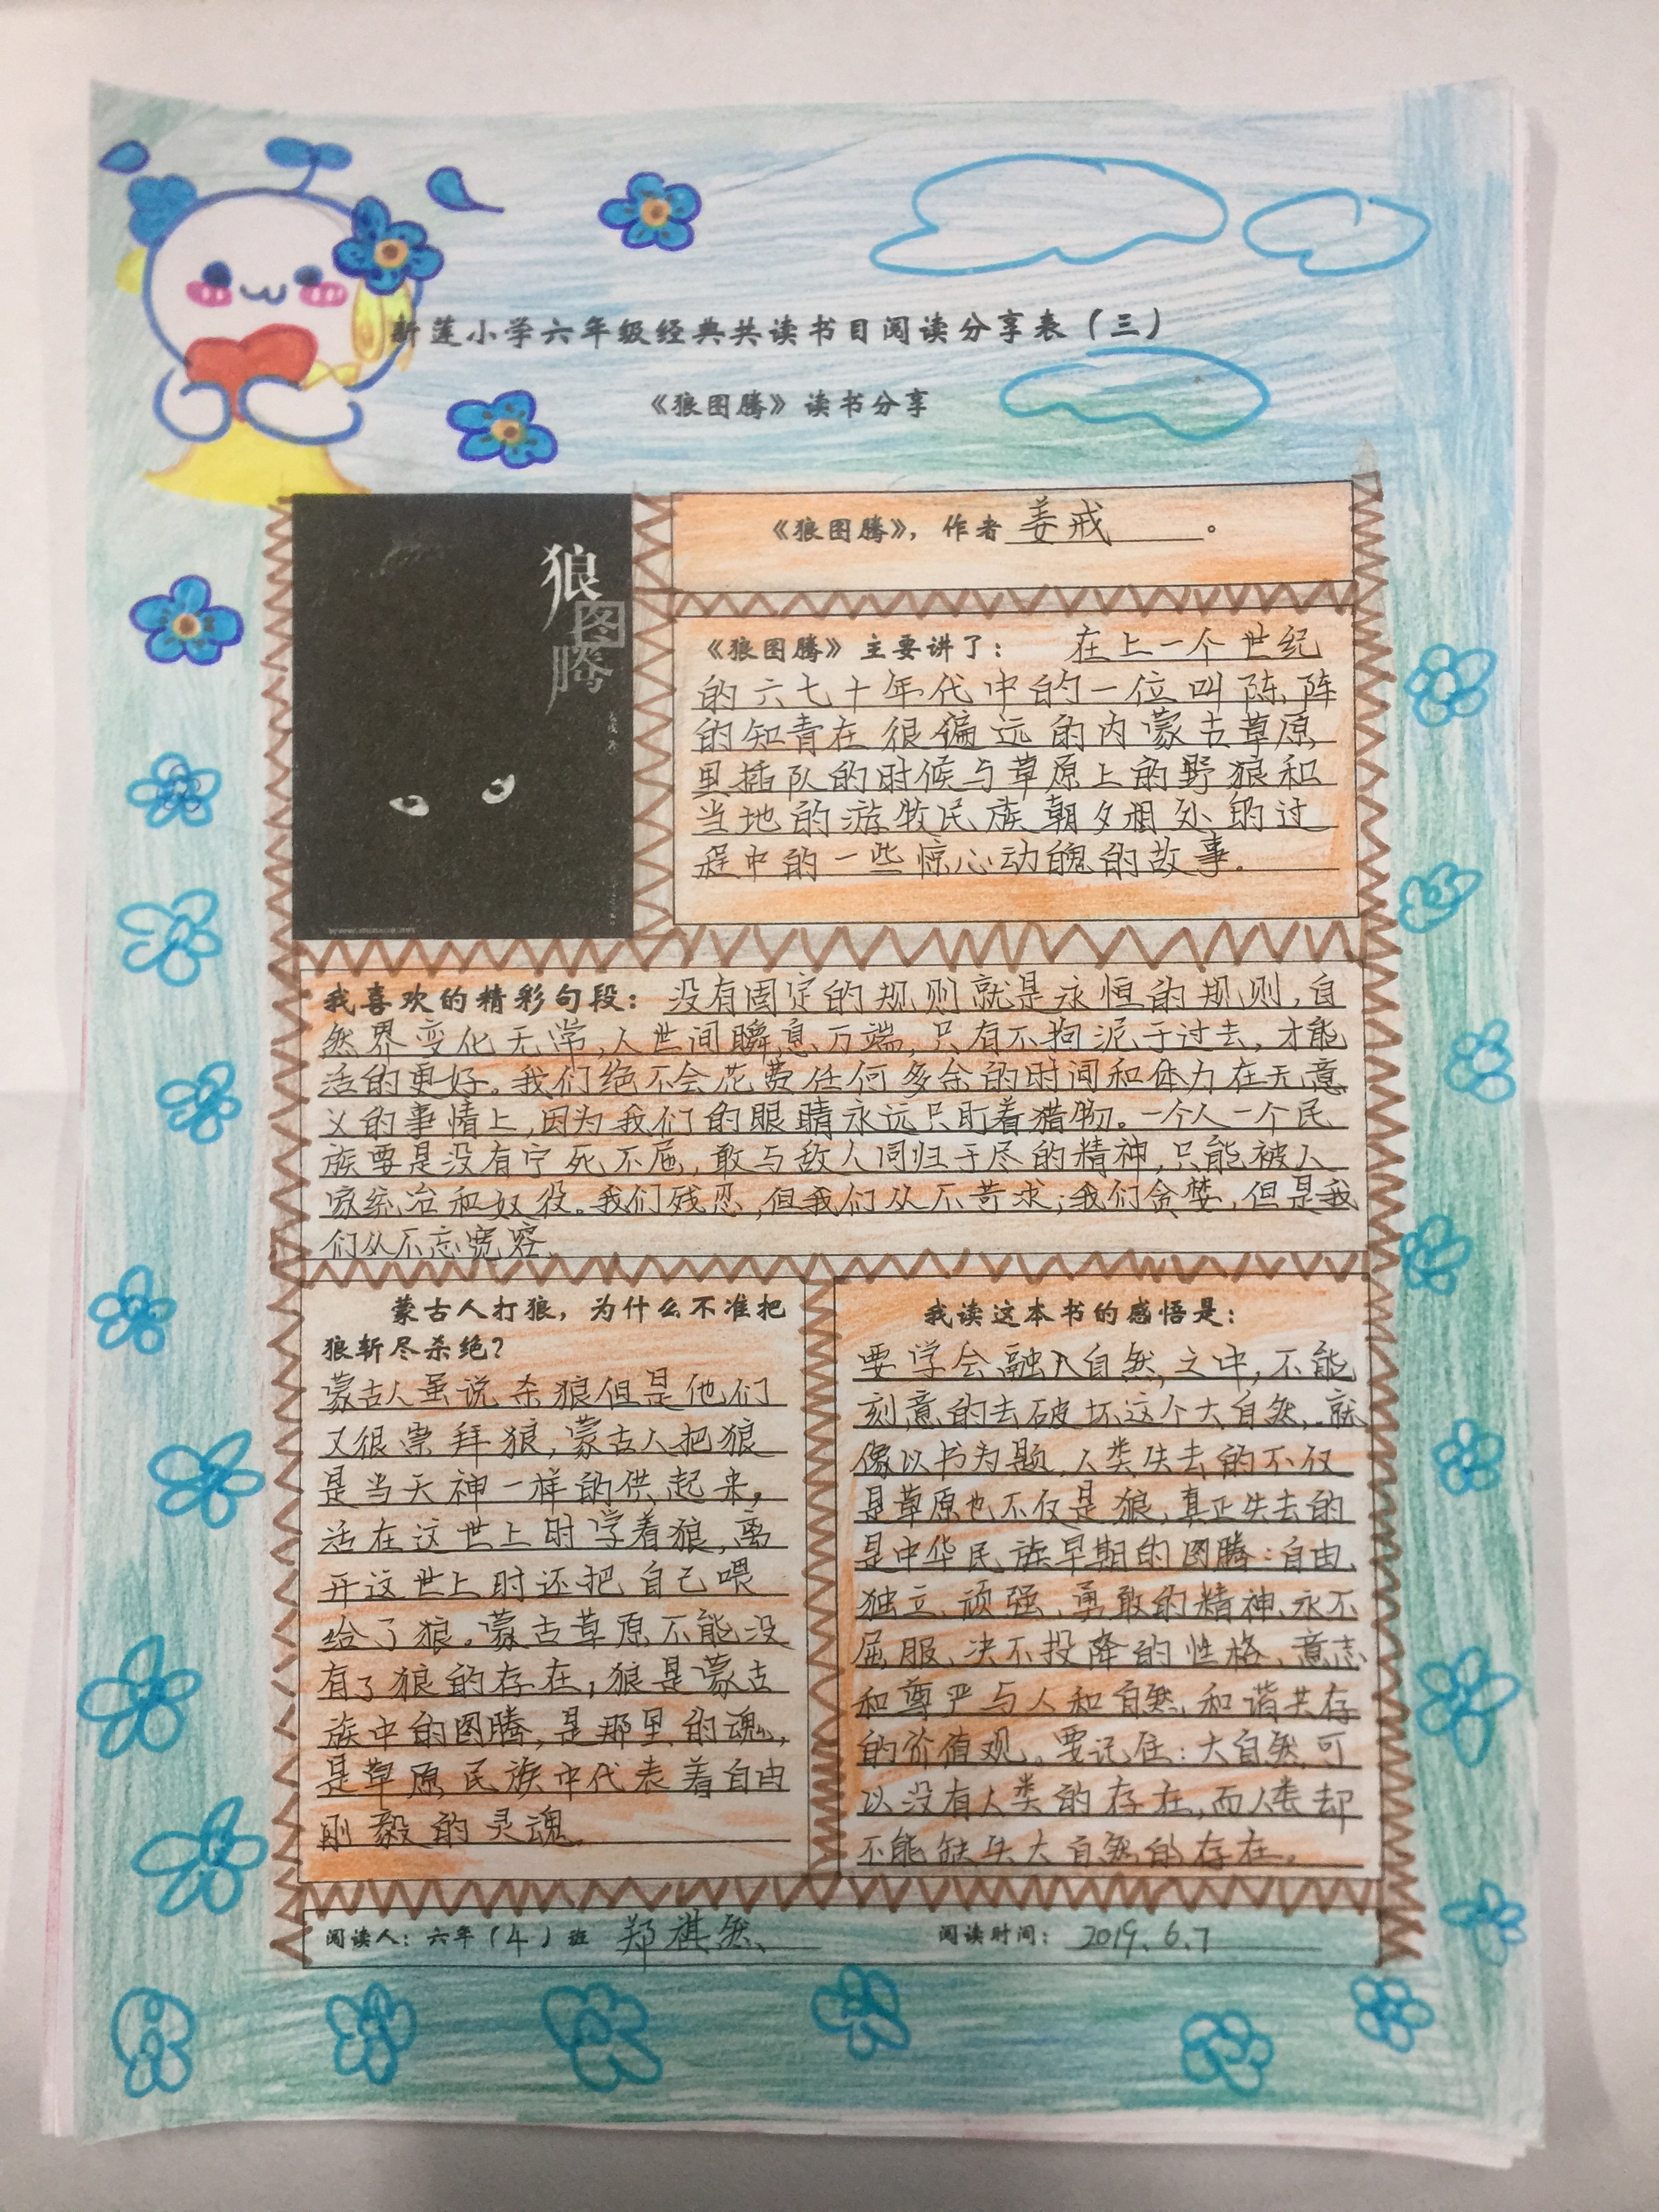 新莲小学六年级经典共读书目阅读分享表（三）
《狼图腾》读书分享
狼
图
腾
《狼图腾》，作者 姜戎 。
《狼图腾》主要讲了： 在上一个世纪
的六七十年代中的一位叫陈阵
的知青在很偏远的内蒙古草原
里插队的时候与草原上的野狼和
当地的游牧民族朝夕相处的过
程中的一些惊心动魄的故事。
我喜欢的精彩句段：没有固定的规则就是永恒的规则，自
然界变化无常，人世间瞬息万端，只有不拘泥于过去，才能
活的更好。我们绝不会花费任何多余的时间和体力在无意
义的事情上，因为我们的眼睛永远只盯着猎物。一个人一个民
族要是没有宁死不屈，敢与敌人同归于尽的精神，只能被人
家统治和奴役。我们残忍，但我们从不苛求；我们贪婪，但是我
们从不忘宽容。
蒙古人打狼，为什么不准把
狼斩尽杀绝？
蒙古人虽说杀狼但是他们
又很崇拜狼，蒙古人把狼
是当天神一样的供起来，
活在这世上时学着狼，离
开这世上时还把自己喂
给了狼。蒙古草原不能没
有了狼的存在，狼是蒙古
族中的图腾，是那里的魂，
是草原民族中代表着自由
刚毅的灵魂。
我读这本书的感悟是：
要学会融入自然之中，不能
刻意的去破坏这个大自然，就
像以书为题，人类失去的不仅
是草原也不仅是狼，真正失去的
是中华民族早期的图腾：自由、
独立、顽强、勇敢的精神、永不
屈服、决不投降的性格、意志
和尊严与人和自然和谐共存
的价值观。要记住：大自然可
以没有人类的存在，而人类却
不能缺失大自然的存在。
阅读人：六年（4）班 郑祺然
阅读时间： 2019.6.7